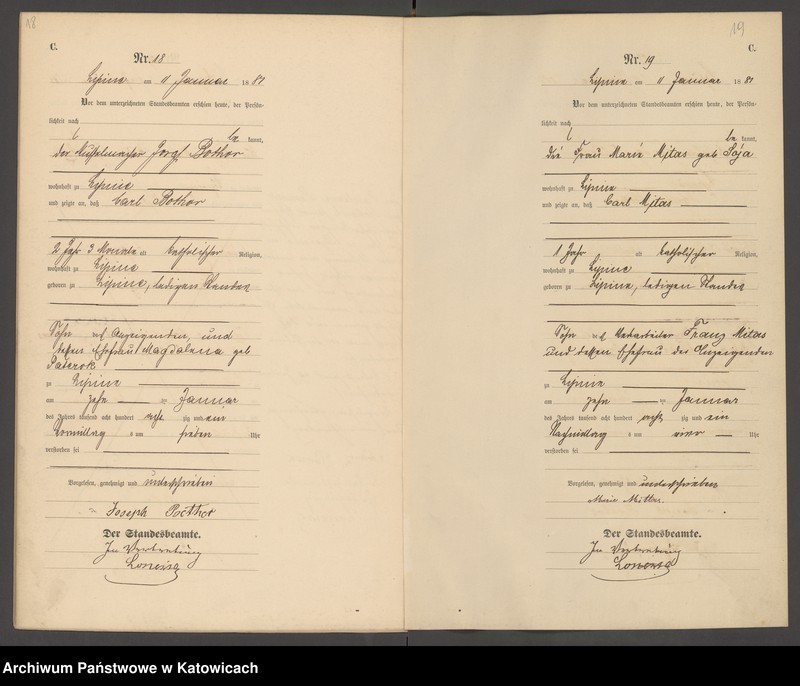 18
C.
Nr. 18
Lipine am 11 Januar 1881
Vor dem unterzeichneten Standesbeamten erschien heute, der Persön-
lichkeit nach
be kannt,
der Josef Bothor
wohnhaft zu Lipine
und zeigte an, daß Carl Bothor
2 Jahr 3 Monate alt katholischer Religion,
wohnhaft zu Lipine
geboren zu Lipine, ledigen Standes
Sohn des Anzeigenden, und
dessen Ehefrau Magdalena geb
Paterok
zu Lipine
am zehn ten Januar
des Jahres tausend acht hundert acht zig und ein
Vormittag s um sieben Uhr
verstorben sei
Vorgelesen, genehmigt und unterschrieben
Joseph Bothor
Der Standesbeamte.
In Vertretung
19
C.
Nr. 19
Lipine am 11 Januar 1881
Vor dem unterzeichneten Standesbeamten erschien heute, der Persön-
lichkeit nach
be kannt,
die Frau Marie Mitas geb Soja
wohnhaft zu Lipine
und zeigte an, daß Carl Mitas
1 Jahr alt katholischer Religion,
wohnhaft zu Lipine
geboren zu Lipine, ledigen Standes
Sohn des Franz Mitas
und dessen Ehefrau der Anzeigenden
zu Lipine
am zehn ten Januar
des Jahres tausend acht hundert acht zig und ein
Nachmittag s um vier Uhr
verstorben sei
Vorgelesen, genehmigt und unterschrieben
Marie Mittas.
Der Standesbeamte.
In Vertretung
Archiwum Państwowe w Katowicach